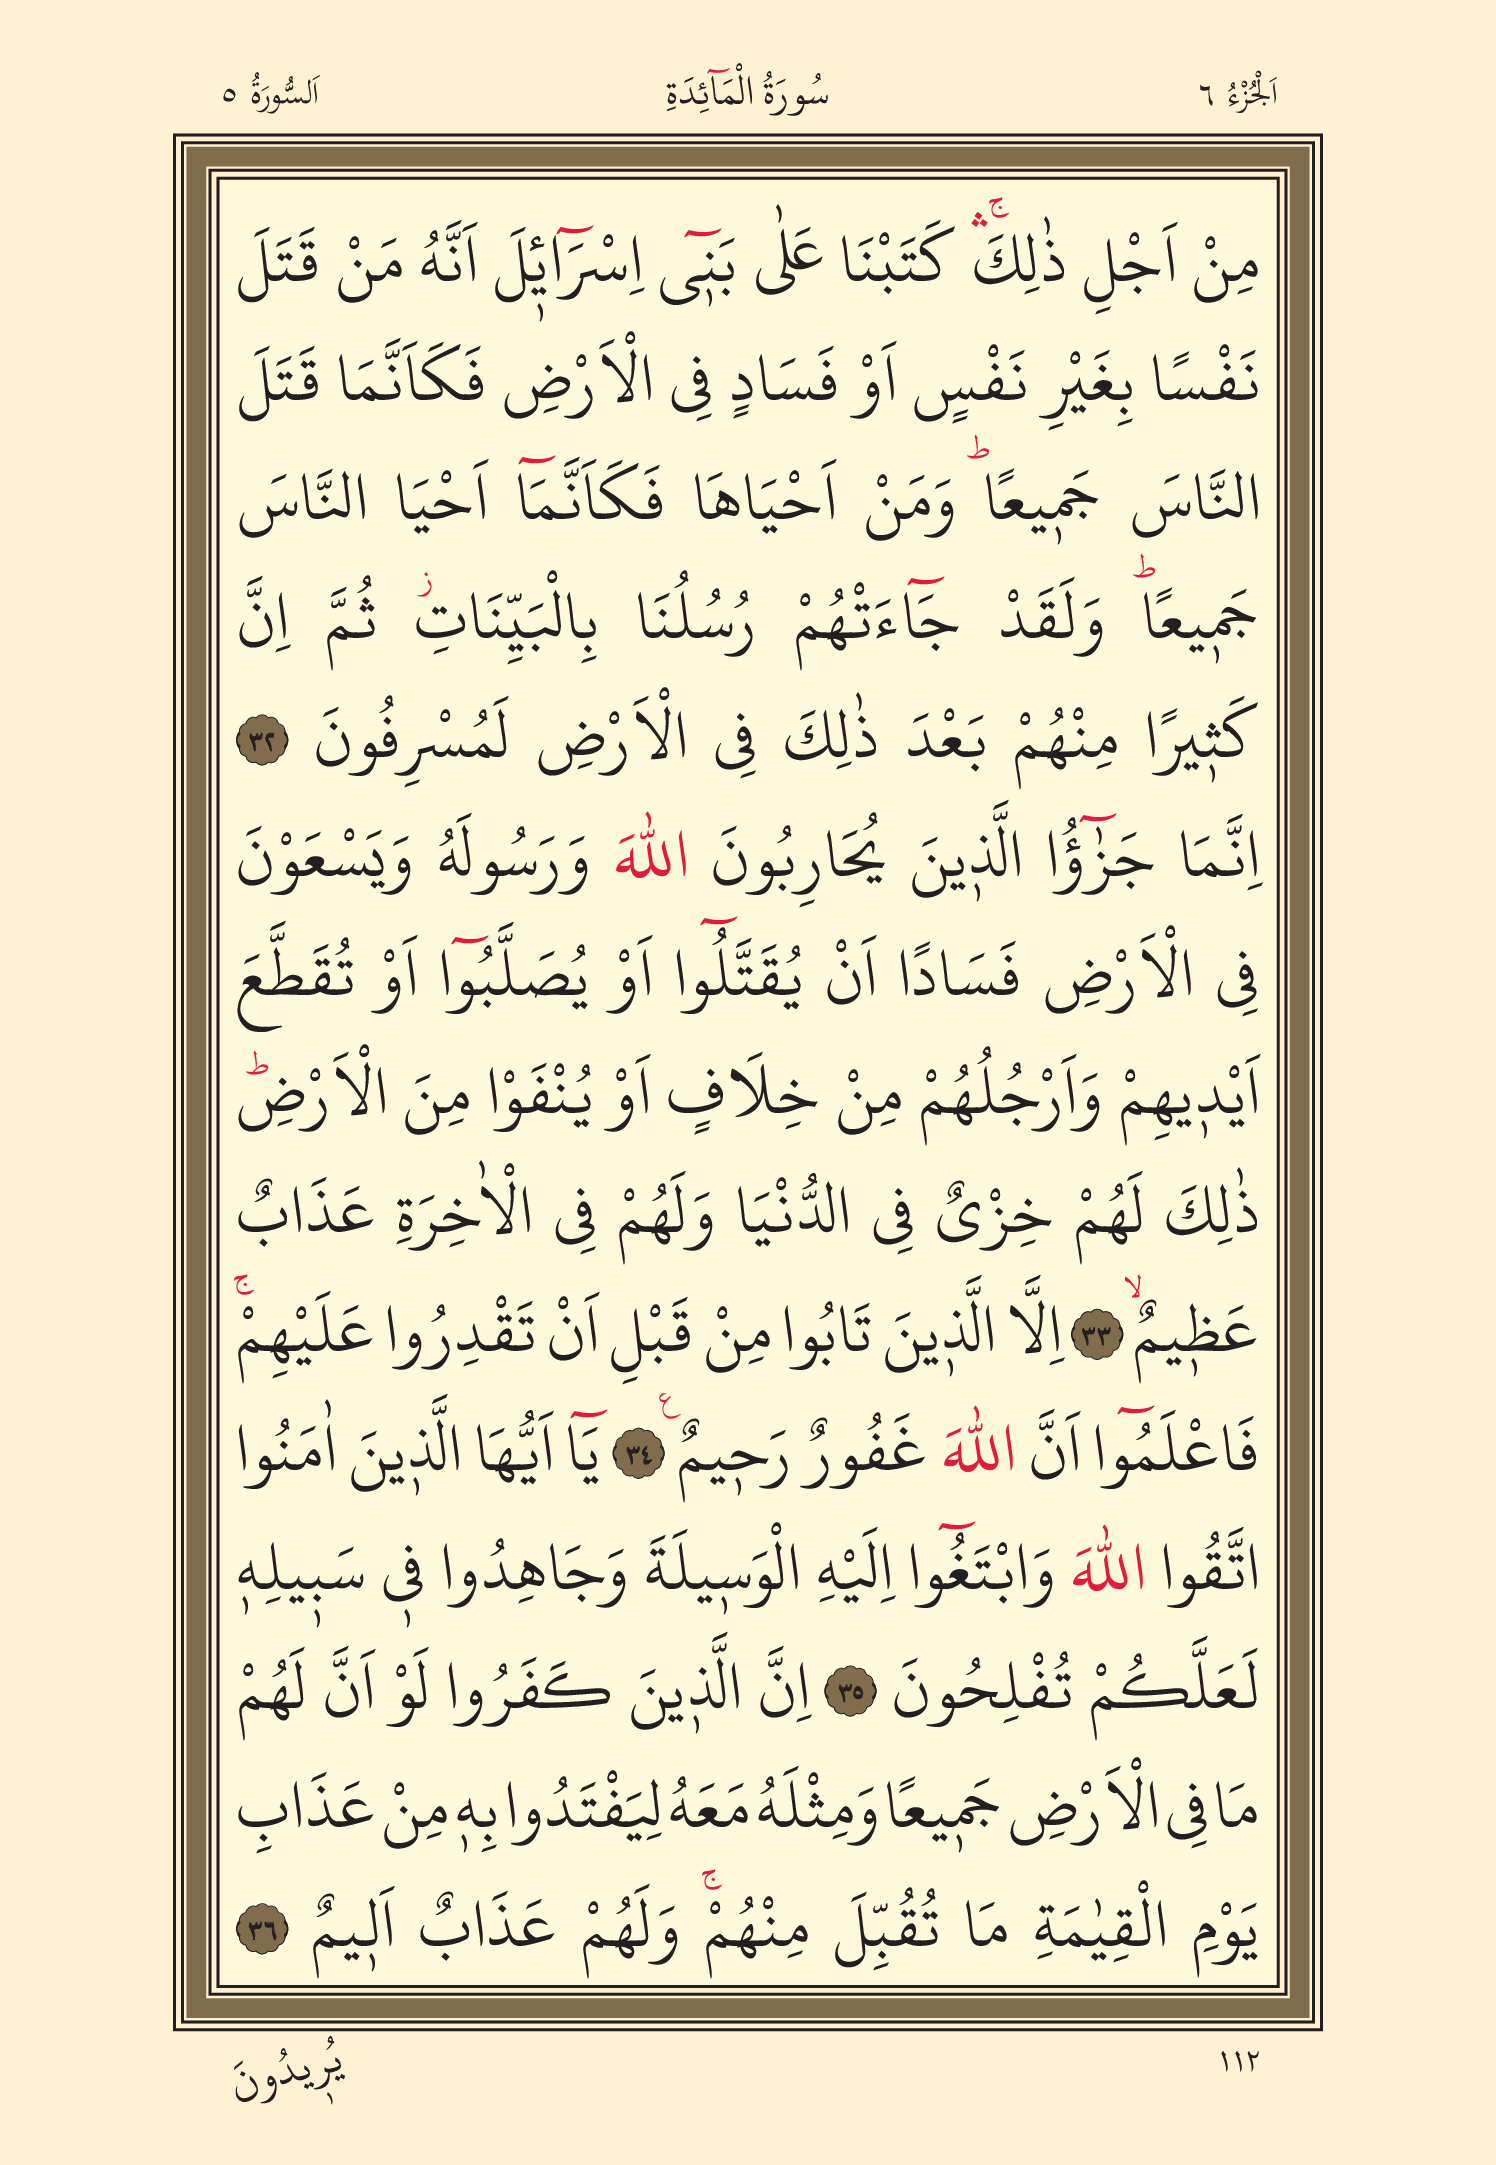 اَلْجُزْءُ ٦
سُورَةُ الْمَٓائِدَةِ
اَلسُّورَةُ ٥
مِنْ اَجْلِ ذٰلِكَۛۚ كَتَبْنَا عَلٰى بَنٖٓى اِسْرَٓائٖلَ اَنَّهُ مَنْ قَتَلَ
نَفْسًا بِغَيْرِ نَفْسٍ اَوْ فَسَادٍ فِى الْاَرْضِ فَكَاَنَّمَا قَتَلَ
النَّاسَ جَمٖيعًاؕ وَمَنْ اَحْيَاهَا فَكَاَنَّمَٓا اَحْيَا النَّاسَ
جَمٖيعًاؕ وَلَقَدْ جَٓاءَتْهُمْ رُسُلُنَا بِالْبَيِّنَاتِؗ ثُمَّ اِنَّ
كَثٖيرًا مِنْهُمْ بَعْدَ ذٰلِكَ فِى الْاَرْضِ لَمُسْرِفُونَ ٣٢
اِنَّمَا جَزٰٓؤُا الَّذٖينَ يُحَارِبُونَ اللّٰهَ وَرَسُولَهُ وَيَسْعَوْنَ
فِى الْاَرْضِ فَسَادًا اَنْ يُقَتَّلُٓوا اَوْ يُصَلَّبُٓوا اَوْ تُقَطَّعَ
اَيْدٖيهِمْ وَاَرْجُلُهُمْ مِنْ خِلَافٍ اَوْ يُنْفَوْا مِنَ الْاَرْضِؕ
ذٰلِكَ لَهُمْ خِزْىٌ فِى الدُّنْيَا وَلَهُمْ فِى الْاٰخِرَةِ عَذَابٌ
عَظٖيمٌۙ ٣٣ اِلَّا الَّذٖينَ تَابُوا مِنْ قَبْلِ اَنْ تَقْدِرُوا عَلَيْهِمْۚ
فَاعْلَمُٓوا اَنَّ اللّٰهَ غَفُورٌ رَحٖيمٌ ࣖ ٣٤ يَٓا اَيُّهَا الَّذٖينَ اٰمَنُوا
اتَّقُوا اللّٰهَ وَابْتَغُٓوا اِلَيْهِ الْوَسٖيلَةَ وَجَاهِدُوا فٖى سَبٖيلِهٖ
لَعَلَّكُمْ تُفْلِحُونَ ٣٥ اِنَّ الَّذٖينَ كَفَرُوا لَوْ اَنَّ لَهُمْ
مَا فِى الْاَرْضِ جَمٖيعًا وَمِثْلَهُ مَعَهُ لِيَفْتَدُوا بِهٖ مِنْ عَذَابِ
يَوْمِ الْقِيٰمَةِ مَا تُقُبِّلَ مِنْهُمْۚ وَلَهُمْ عَذَابٌ اَلٖيمٌ ٣٦
١١٢
يُرٖيدُونَ